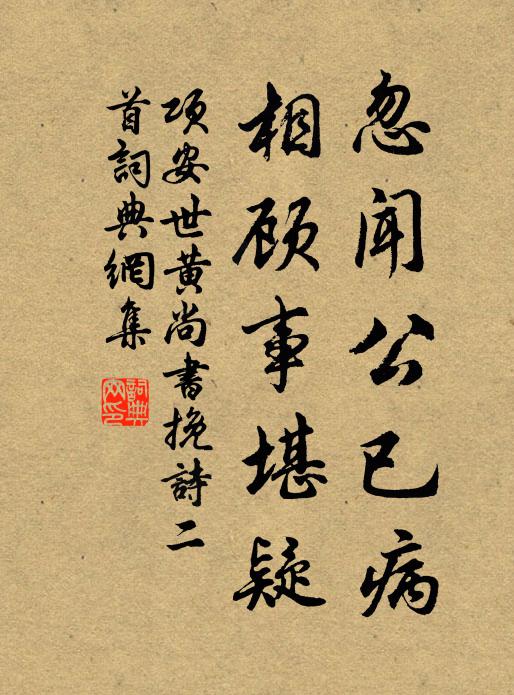 忽闻公已病
相顾事堪疑
项安世黄尚書挽詩二
首詞典網集
詞典
网印